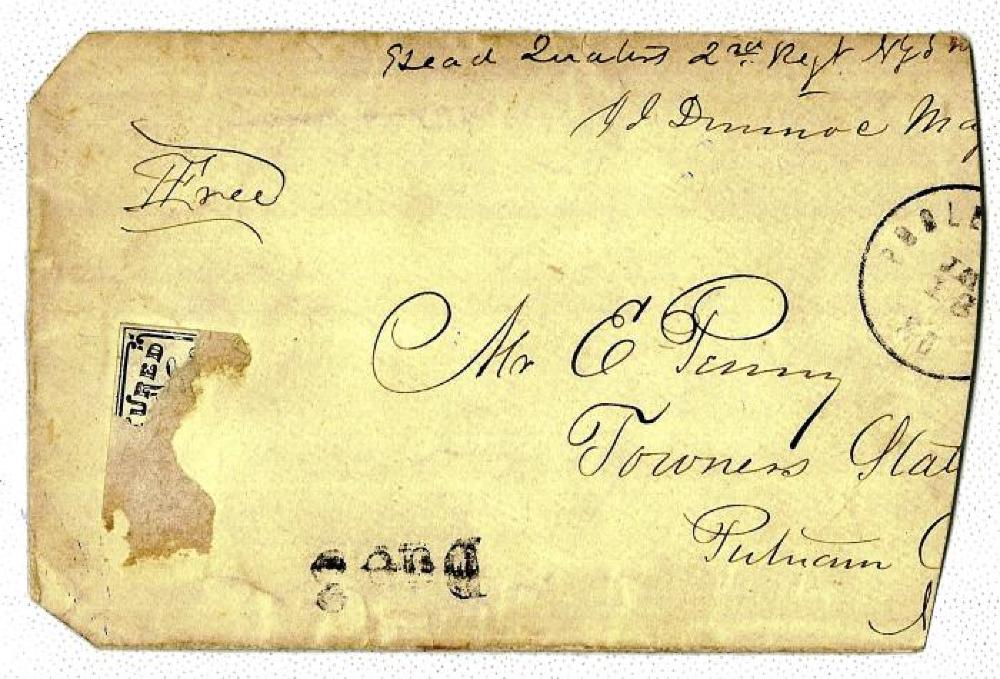 Head Quaters 2nd Regt NYS
Drummoc Maj
Free
POOLE
JA
18
MD
URED
Mr E Penny
Towners Stat
Putnam C
N